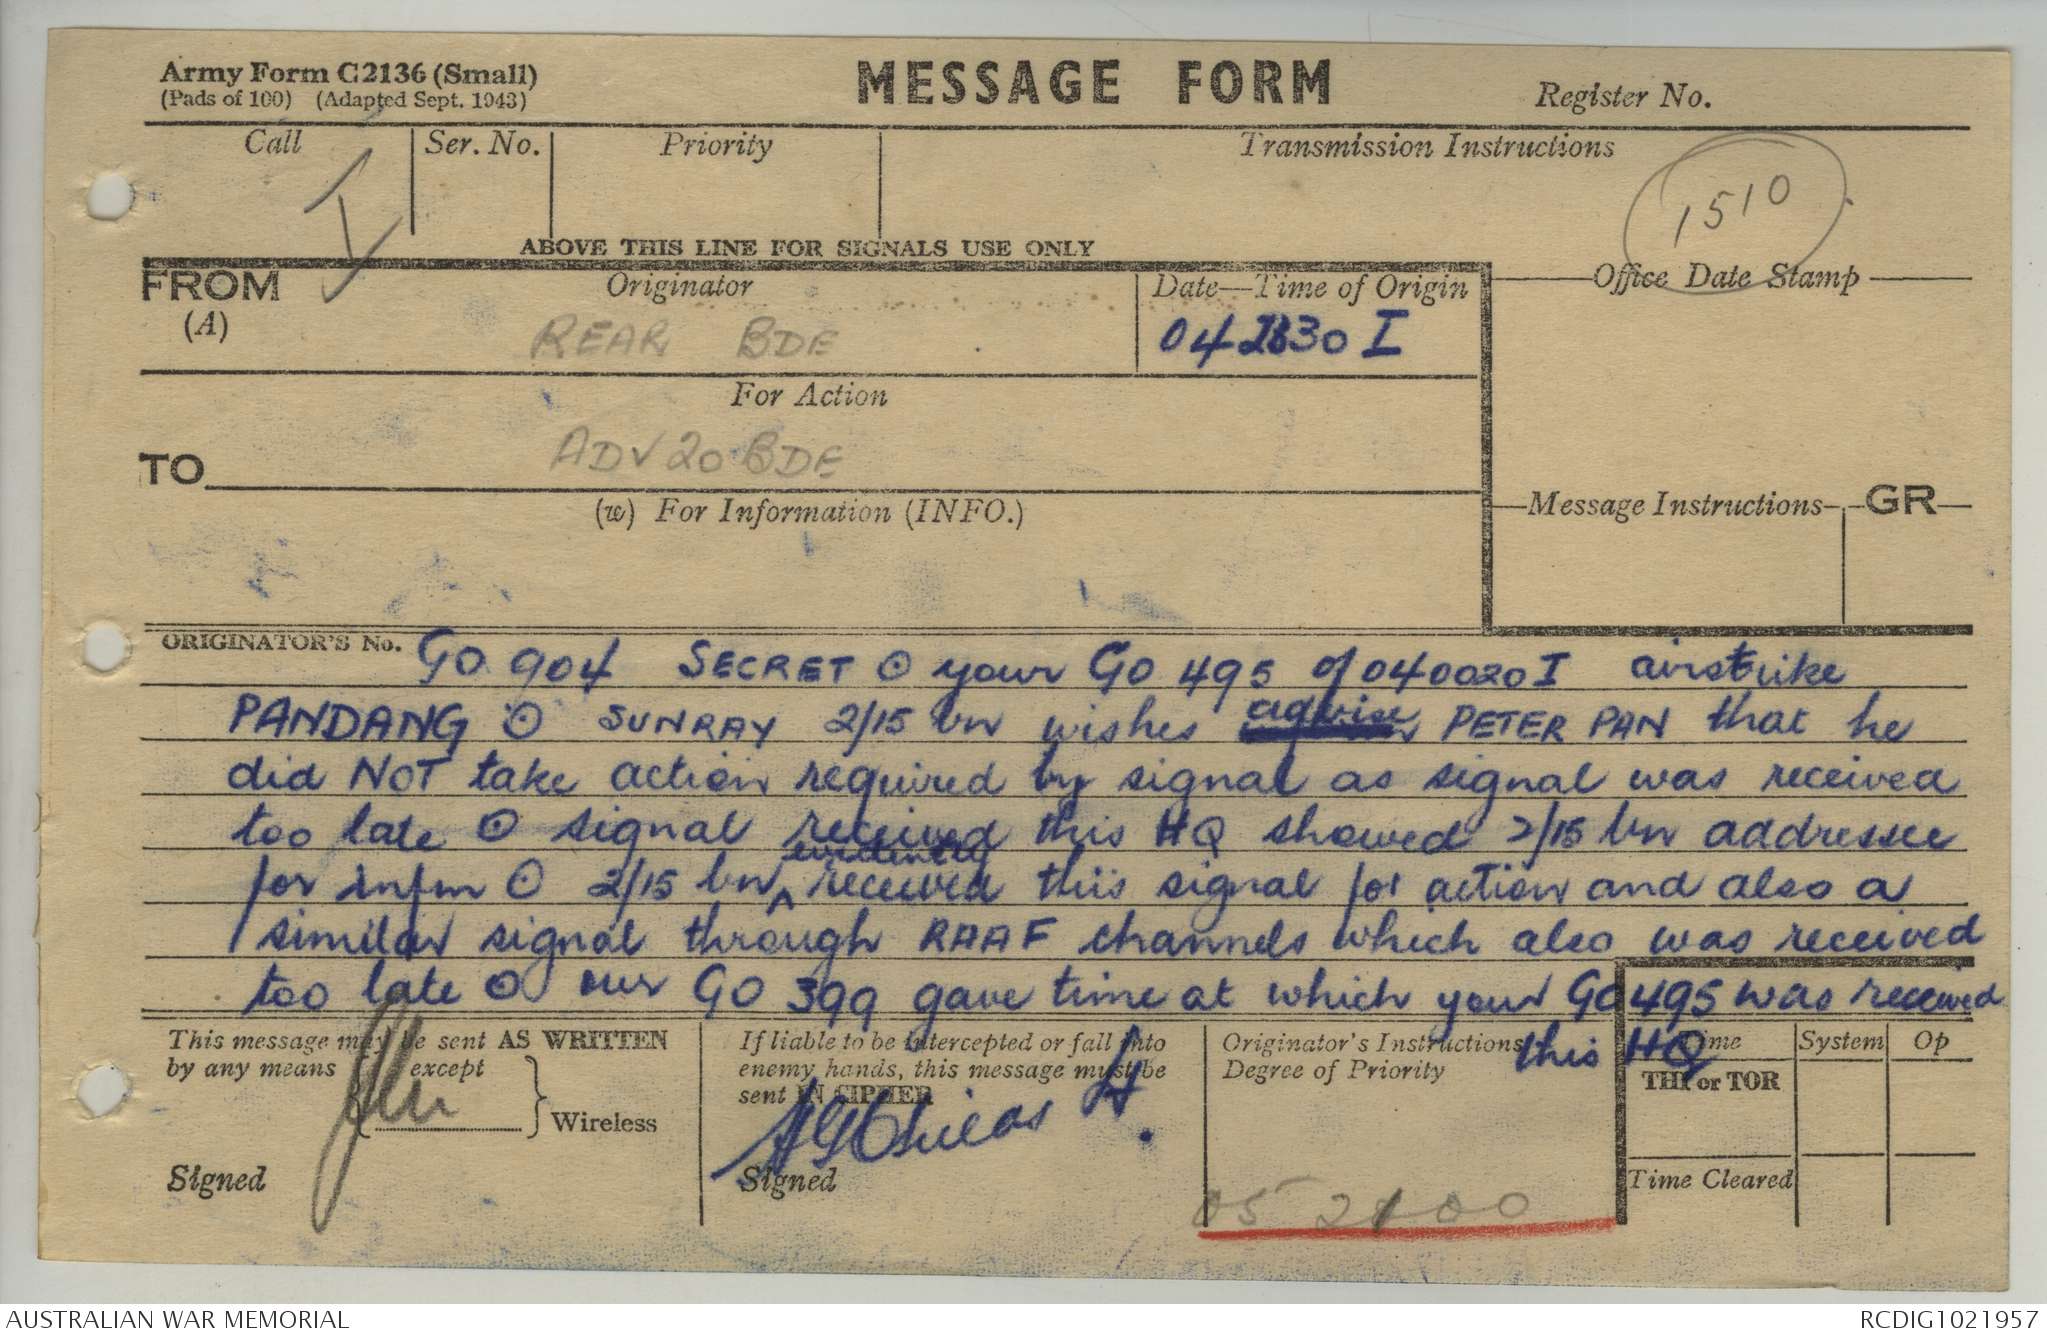 Army Form C2136 (Small)
(Pads of 100) (Adapted Sept. 1943)
MESSAGE FORM
Register No.
Call
Ser. No.
Priority
Transmission Instructions
1510
ABOVE THIS LINE FOR SIGNALS USE ONLY
FROM
(A)
Originator
REAR BDE
Date—Time of Origin
I
Office Date Stamp
For Action
TO
ADV 20 BDE
(w) For Information (INFO.)
Message Instructions
GR
ORIGINATOR'S No.
GO 904 SECRET ⊙ your GO 495 of 040020 I airstrike
PANDANG ⊙ SUNRAY 2/15 bn wishes advise PETER PAN that he
did NOT take action required by signal as signal was received
too late ⊙ signal received this HQ showed 2/15 bn addressee
for infm ⊙ 2/15 bn ^ evidently received this signal for action and also a
similar signal through RAAF channels which also was received
too late ⊙ our GO 399 gave time at which your GO 495 was received
this HQ
This message may be sent AS WRITTEN
by any means except
Wireless
Signed
If liable to be intercepted or fall into
enemy hands, this message must be
sent IN CIPHER
Signed
Originator's Instructions
Degree of Priority
05 2100
Time
System
Op
THI or TOR
Time Cleared
AUSTRALIAN WAR MEMORIAL
RCDIG1021957